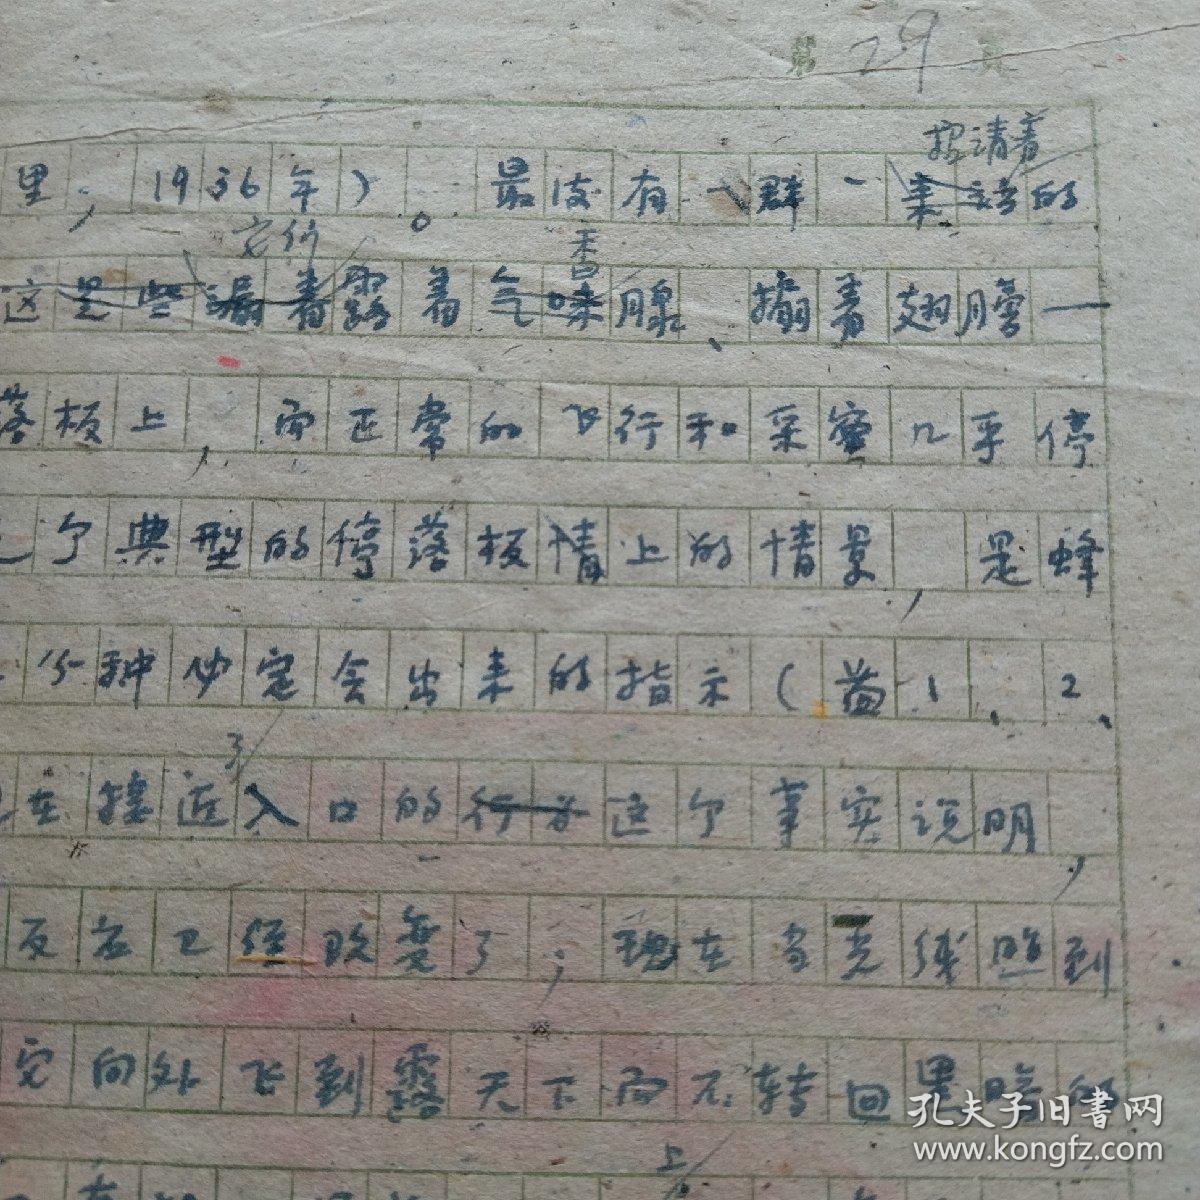 第 29 页
挖清着
里，1936年）。最后有一群一来访的
它们 香
这是些漏着露着气味腺、搧着翅膀一
落板上，而正常的飞行和采蜜几乎停
个典型的停落板情上的情景，是蜂
分种必定会出来的指示（益1、2、
了
在接近入口的行为这个事实说明，
反应已经改变了；现在当光线照到
它向外飞到露天下而不转回黑暗的
上
孔夫子旧书网
www.kongfz.com